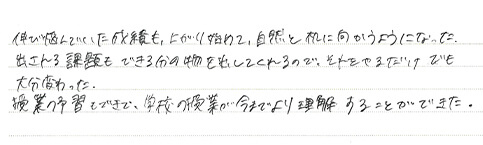 伸び悩んでいた成績も、上がり始めて、自然と机に向かうようになった.
出される課題もできる分の物を出してくれるので、それをやるだけでも
大分変わった.
授業の予習もできて、学校の授業が今までより理解することができた.